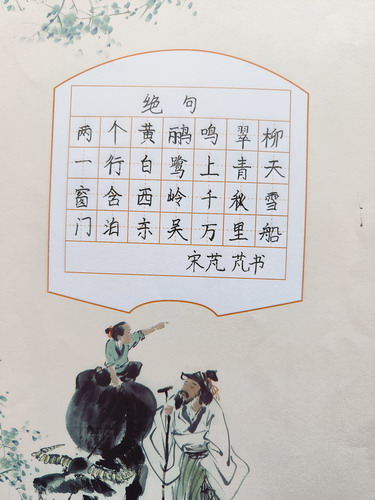 绝句
两个黄鹂鸣翠柳
一行白鹭上青天
窗含西岭千秋雪
门泊东吴万里船
宋芃芃书